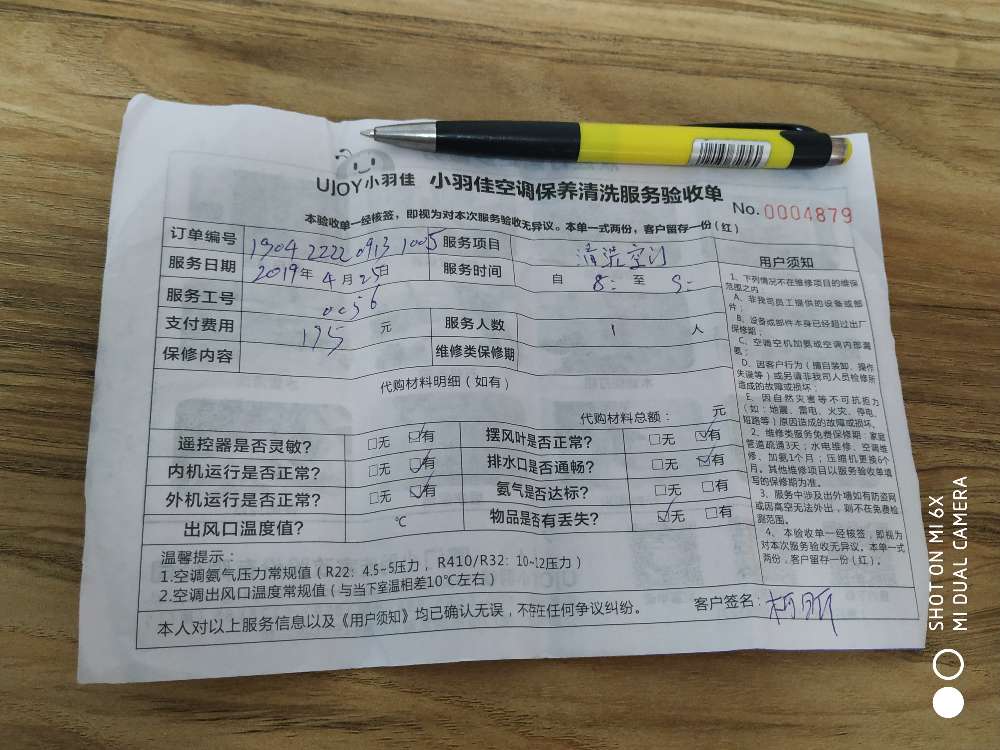 UJOY小羽佳 小羽佳空调保养清洗服务验收单
No. 0004879
本验收单一经核签，即视为对本次服务验收无异议。本单一式两份，客户留存一份（红）
订单编号 1904 2222 0913 1005 服务项目 清洗空调
服务日期 2019年 4月 25日 服务时间 自 8: 至 9:
服务工号 0056
支付费用 195 元 服务人数 1 人
保修内容 维修类保修期
代购材料明细（如有）
代购材料总额： 元
遥控器是否灵敏? □无 ☑有 摆风叶是否正常? □无 ☑有
内机运行是否正常? □无 ☑有 排水口是否通畅? □无 ☑有
外机运行是否正常? □无 ☑有 氨气是否达标? □无 □有
出风口温度值? ℃ 物品是否有丢失? ☑无 □有
温馨提示：
1.空调氨气压力常规值（R22：4.5~5压力，R410/R32：10~12压力）
2.空调出风口温度常规值（与当下室温相差10℃左右）
本人对以上服务信息以及《用户须知》均已确认无误，不存在任何争议纠纷。 客户签名:
用户须知
1、下列情况不在维修项目的维保
范围之内：
A、非我司员工提供的设备或部
件；
B、设备或部件本身已经超过出厂
保修期；
C、空调空机加氨或空调内部漏
氨；
D、因客户行为（擅自装卸、操作
失误等）或另请非我司人员检修所
造成的故障或损坏；
E、因自然灾害等不可抗拒力
（如：地震、雷电、火灾、停电、
短路等）原因造成的故障或损坏、
2、维修类服务免费保修期：家庭
管道疏通3天；水电维修、空调维
修、加氨1个月；压缩机更换6个
月。其他维修项目以服务验收单填
写的保修期为准。
3、服务中涉及出外墙如有防盗网
或因高空无法外出，则不在免费检
测范围。
4、本验收单一经核签，即视为
对本次服务验收无异议。本单一式
两份，客户留存一份（红）。
SHOT ON MI 6X
MI DUAL CAMERA